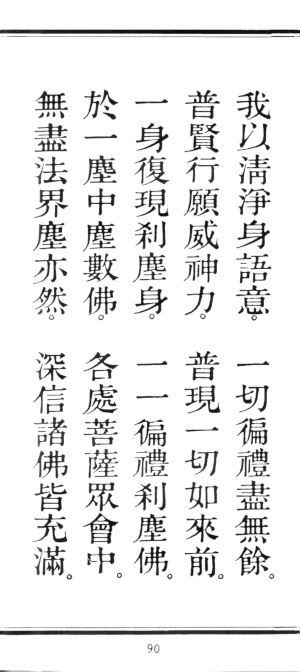 我以清淨身語意。一切徧禮盡無餘。
普賢行願威神力。普現一切如來前。
一身復現剎塵身。一一徧禮剎塵佛。
於一塵中塵數佛。各處菩薩眾會中。
無盡法界塵亦然。深信諸佛皆充滿。
90